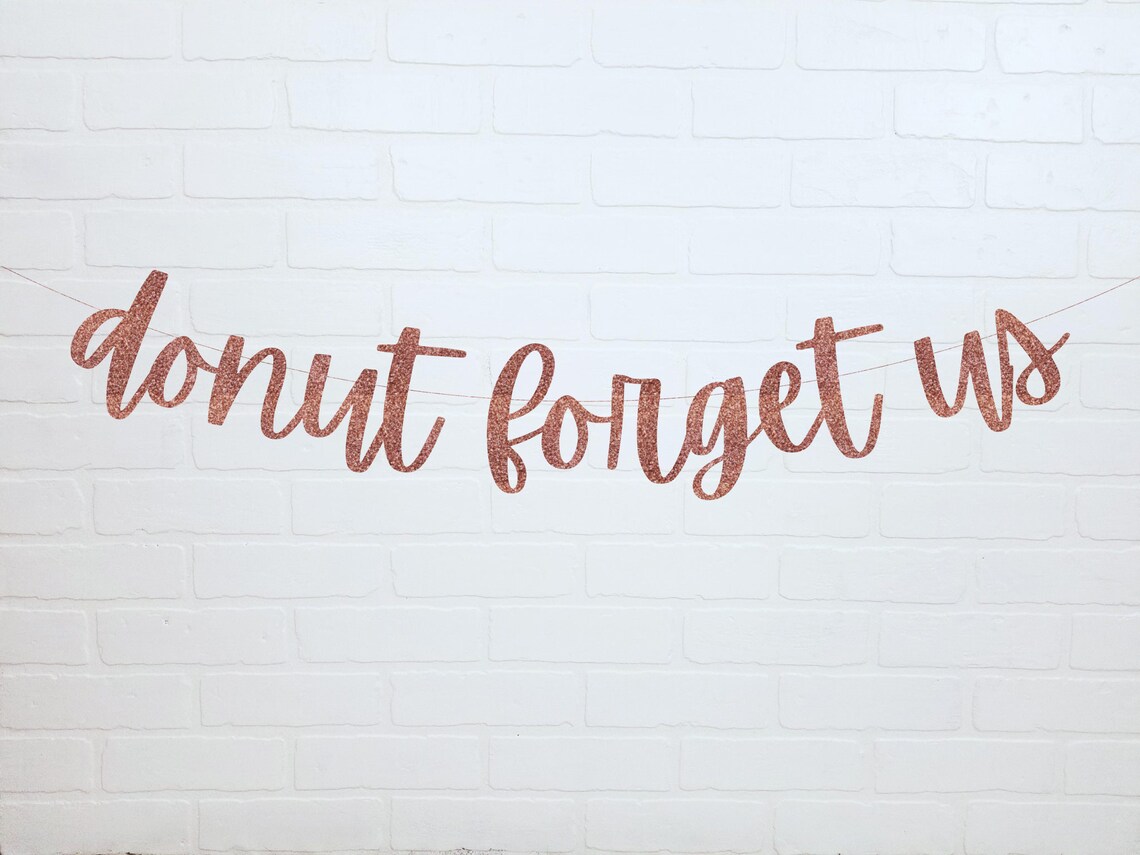 donut forget us